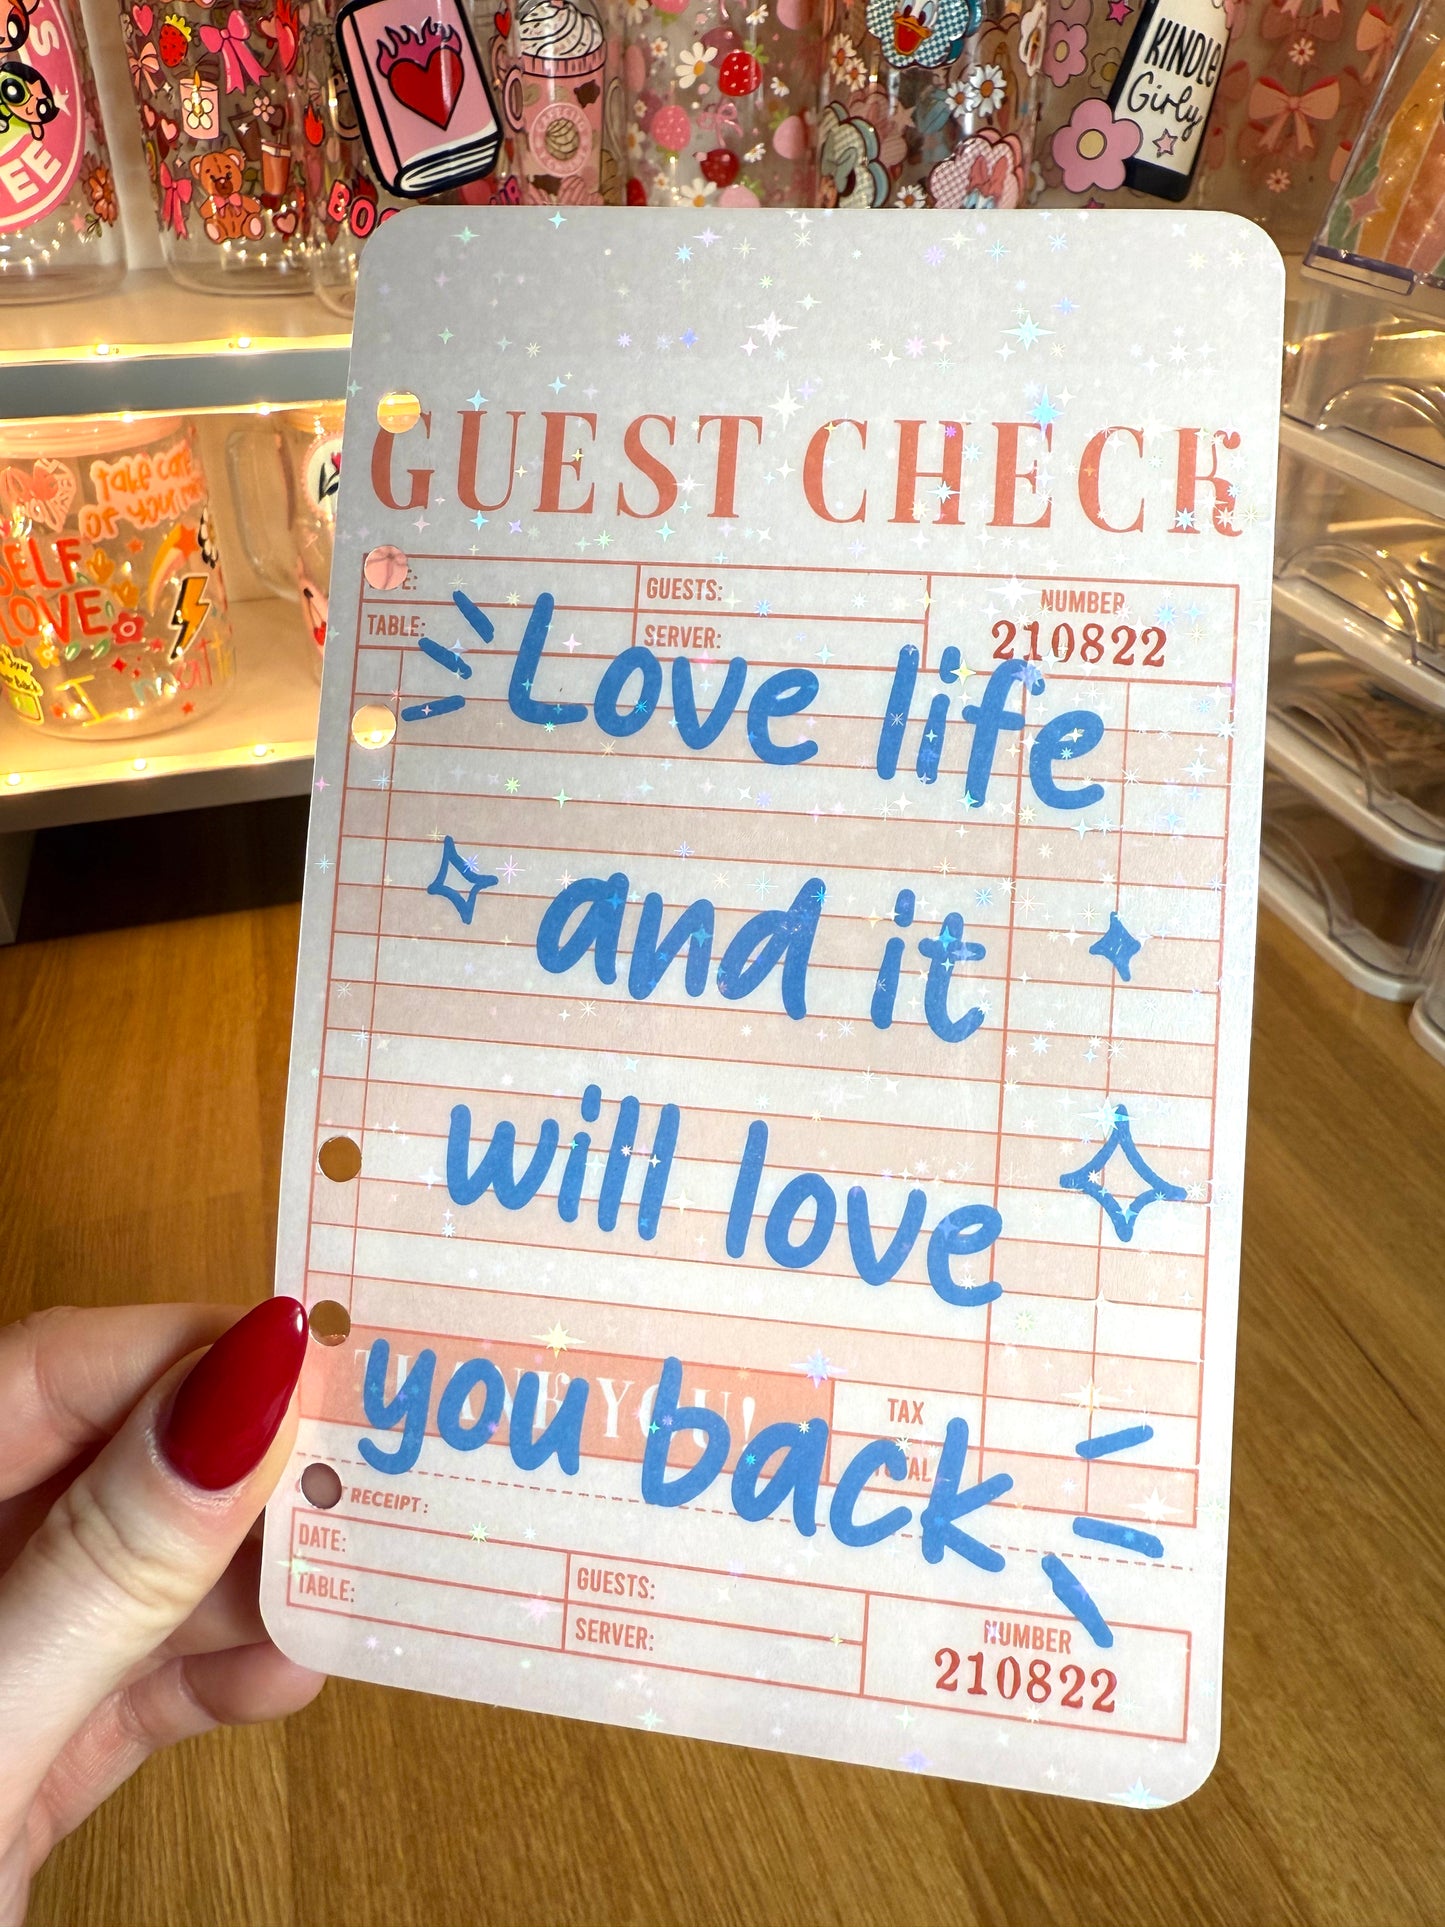 KINDLE
Girly
GUEST CHECK
GUESTS:
NUMBER
TABLE:
SERVER:
210822
Love life
and it
will love
you back
THANK YOU!
TAX
TOTAL
RECEIPT:
DATE:
GUESTS:
NUMBER
TABLE:
SERVER:
210822
take care
of your
SELF
LOVE
I